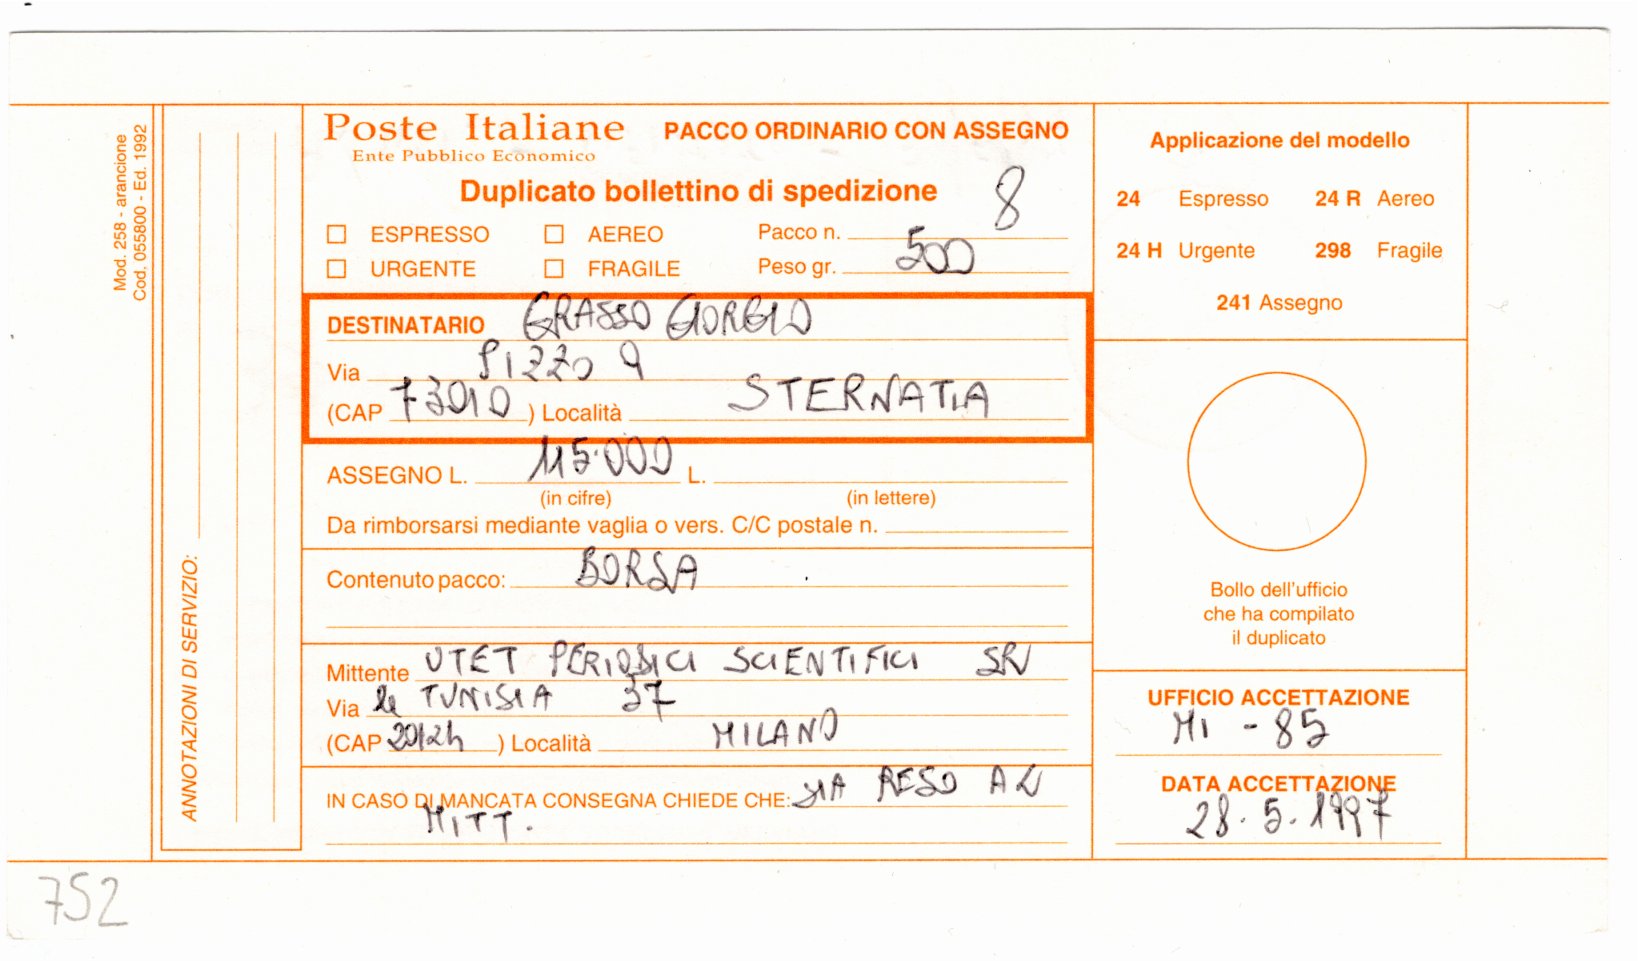 Mod. 258 - arancione
Cod. 055800 - Ed. 1992
ANNOTAZIONI DI SERVIZIO:
Poste Italiane PACCO ORDINARIO CON ASSEGNO
Ente Pubblico Economico
Duplicato bollettino di spedizione
ESPRESSO AEREO Pacco n. 8
URGENTE FRAGILE Peso gr. 500
DESTINATARIO GRASSO GIORGIO
Via PIZZO 9
(CAP 73010 ) Località STERNATIA
ASSEGNO L. 115.000 L.
(in cifre) (in lettere)
Da rimborsarsi mediante vaglia o vers. C/C postale n.
Contenuto pacco: BORSA
Mittente UTET PERIODICI SCIENTIFICI SRL
Via le TUNISIA 37
(CAP 20124 ) Località MILANO
IN CASO DI MANCATA CONSEGNA CHIEDE CHE: SIA RESO AL
MITT.
Applicazione del modello
24 Espresso 24 R Aereo
24 H Urgente 298 Fragile
241 Assegno
Bollo dell'ufficio
che ha compilato
il duplicato
UFFICIO ACCETTAZIONE
MI - 85
DATA ACCETTAZIONE
28.5.1997
752